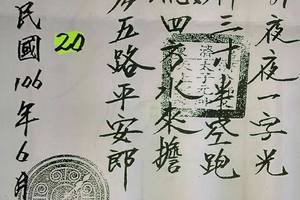 夜夜一字光
三寸半空跑
四方水來擔
五路平安郎
20
民國106年6月